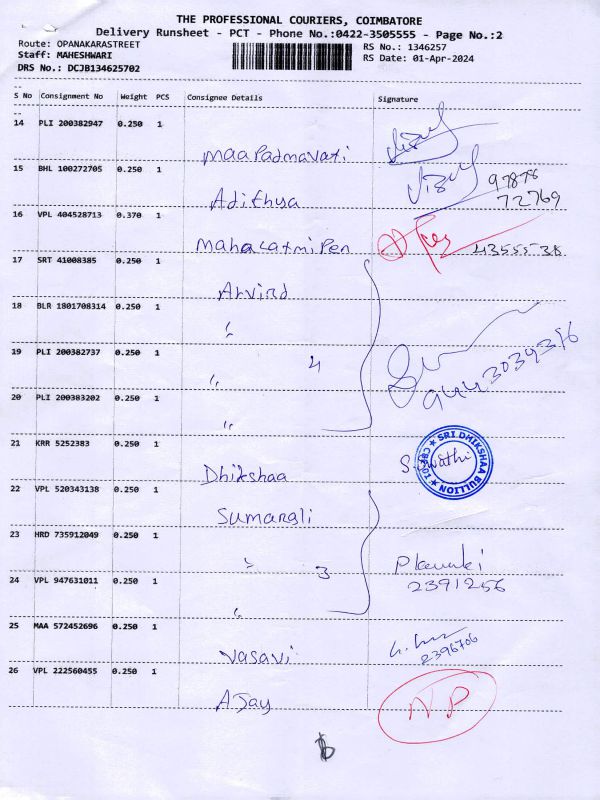 THE PROFESSIONAL COURIERS, COIMBATORE
Delivery Runsheet - PCT - Phone No.:0422-3505555 - Page No.:2
Route: OPANAKARASTREET RS No.: 1346257
Staff: MAHESHWARI RS Date: 01-Apr-2024
DRS No.: DCJB134625702
S No Consignment No Weight PCS Consignee Details Signature
14 PLI 200382947 0.250 1
Maa Padmavati
15 BHL 100272705 0.250 1 97876
Adithya 72769
16 VPL 404528713 0.370 1
Mahalaxmi Pen 4355538
17 SRT 41008385 0.250 1
Arvind
18 BLR 1801708314 0.250 1
"
19 PLI 200382737 0.250 1
" 4
20 PLI 200383202 0.250 1
"
21 KRR 5252383 0.250 1
Dhikshaa S. Swathi
SRI DHIKSHAA BULLION
22 VPL 520343138 0.250 1
Sumangli
23 HRD 735912049 0.250 1
" 3
24 VPL 947631011 0.250 1 2391256
"
25 MAA 572452696 0.250 1
Vasavi 2396706
26 VPL 222560455 0.250 1
Ajay NP